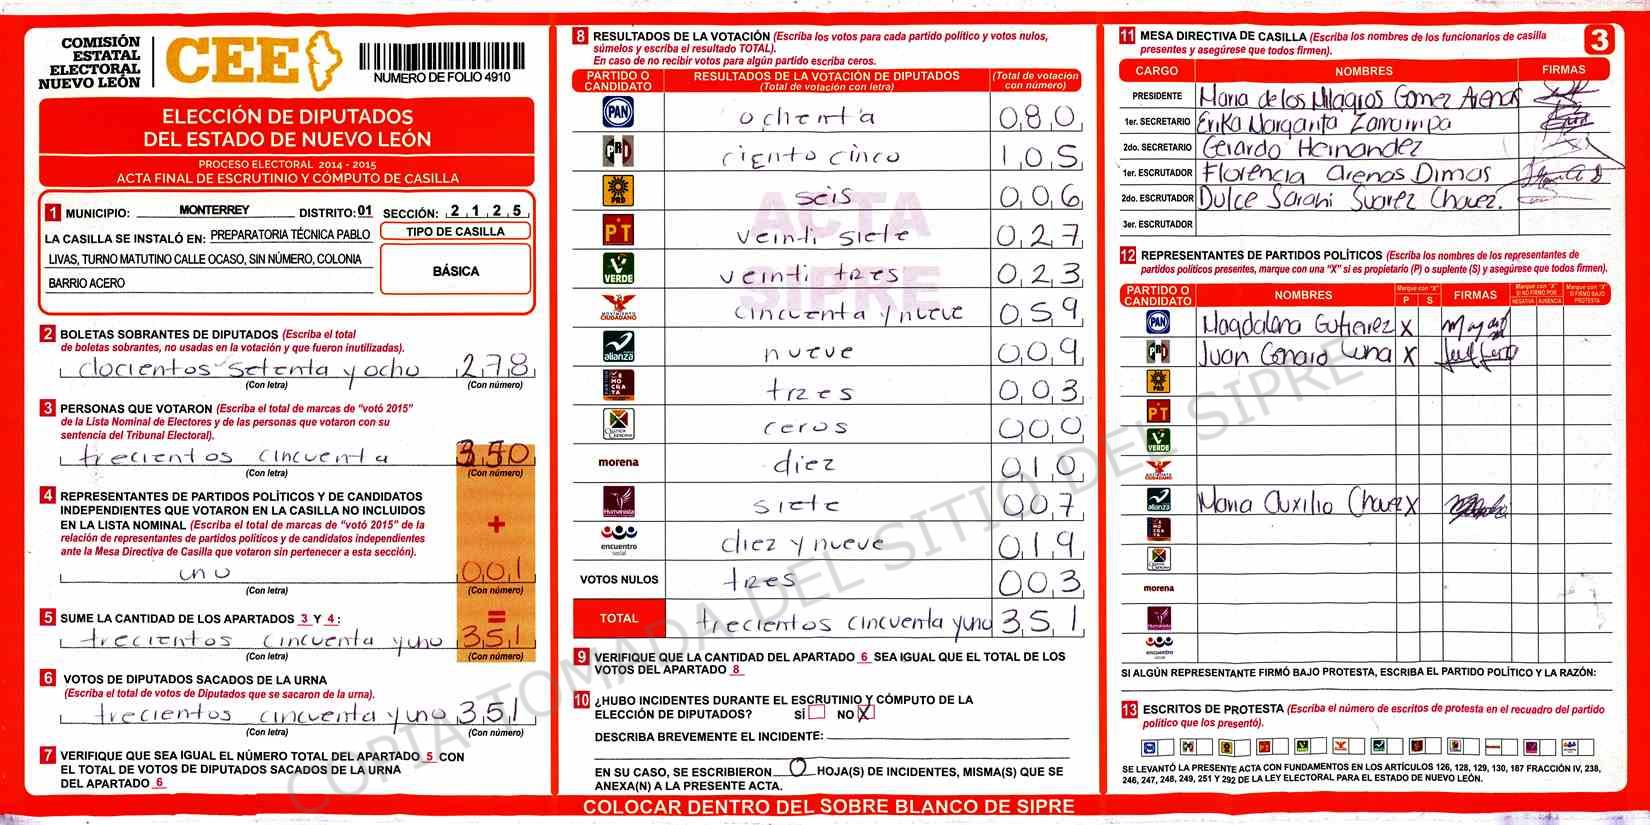 COMISIÓN
ESTATAL
ELECTORAL
NUEVO LEÓN
CEE
NUMERO DE FOLIO 4910
ELECCIÓN DE DIPUTADOS
DEL ESTADO DE NUEVO LEÓN
PROCESO ELECTORAL 2014 - 2015
ACTA FINAL DE ESCRUTINIO Y CÓMPUTO DE CASILLA
1 MUNICIPIO: MONTERREY DISTRITO: 01 SECCIÓN: 2125
LA CASILLA SE INSTALÓ EN: PREPARATORIA TÉCNICA PABLO
LIVAS, TURNO MATUTINO CALLE OCASO, SIN NÚMERO, COLONIA
BARRIO ACERO
TIPO DE CASILLA
BÁSICA
2 BOLETAS SOBRANTES DE DIPUTADOS (Escriba el total
de boletas sobrantes, no usadas en la votación y que fueron inutilizadas).
docientos setenta y ocho 278
(Con letra) (Con número)
3 PERSONAS QUE VOTARON (Escriba el total de marcas de “votó 2015”
de la Lista Nominal de Electores y de las personas que votaron con su
sentencia del Tribunal Electoral).
trecientos cincuenta 350
(Con letra) (Con número)
4 REPRESENTANTES DE PARTIDOS POLÍTICOS Y DE CANDIDATOS
INDEPENDIENTES QUE VOTARON EN LA CASILLA NO INCLUIDOS
EN LA LISTA NOMINAL (Escriba el total de marcas de “votó 2015” de la
relación de representantes de partidos políticos y de candidatos independientes
ante la Mesa Directiva de Casilla que votaron sin pertenecer a esta sección).
+
uno 001
(Con letra) (Con número)
=
5 SUME LA CANTIDAD DE LOS APARTADOS 3 Y 4:
trecientos cincuenta y uno 351
(Con letra) (Con número)
6 VOTOS DE DIPUTADOS SACADOS DE LA URNA
(Escriba el total de votos de Diputados que se sacaron de la urna).
trecientos cincuenta y uno 351
(Con letra) (Con número)
7 VERIFIQUE QUE SEA IGUAL EL NÚMERO TOTAL DEL APARTADO 5 CON
EL TOTAL DE VOTOS DE DIPUTADOS SACADOS DE LA URNA
DEL APARTADO 6
8 RESULTADOS DE LA VOTACIÓN (Escriba los votos para cada partido político y votos nulos,
súmelos y escriba el resultado TOTAL).
En caso de no recibir votos para algún partido escriba ceros.
PARTIDO O CANDIDATO RESULTADOS DE LA VOTACIÓN DE DIPUTADOS (Total de votación con letra) (Total de votación con número)
PAN ochenta 080
PRI ciento cinco 105
PRD seis 006
PT veinti siete 027
VERDE veinti tres 023
MOVIMIENTO CIUDADANO cincuenta y nueve 059
alianza nueve 009
DEMOCRATA tres 003
CRUZADA CIUDADANA ceros 000
morena diez 010
Humanista siete 007
encuentro social diez y nueve 019
VOTOS NULOS tres 003
TOTAL trecientos cincuenta y uno 351
ACTA
SIPRE
9 VERIFIQUE QUE LA CANTIDAD DEL APARTADO 6 SEA IGUAL QUE EL TOTAL DE LOS
VOTOS DEL APARTADO 8
10 ¿HUBO INCIDENTES DURANTE EL ESCRUTINIO Y CÓMPUTO DE LA
ELECCIÓN DE DIPUTADOS? SÍ NO X
DESCRIBA BREVEMENTE EL INCIDENTE:
EN SU CASO, SE ESCRIBIERON 0 HOJA(S) DE INCIDENTES, MISMA(S) QUE SE
ANEXA(N) A LA PRESENTE ACTA.
COLOCAR DENTRO DEL SOBRE BLANCO DE SIPRE
11 MESA DIRECTIVA DE CASILLA (Escriba los nombres de los funcionarios de casilla
presentes y asegúrese que todos firmen).
3
CARGO NOMBRES FIRMAS
PRESIDENTE Maria de los Milagros Gomez Arenas
1er. SECRETARIO Erika Margarita Zarrampa
2do. SECRETARIO Gerardo Hernandez
1er. ESCRUTADOR Florencia Arenas Dimas
2do. ESCRUTADOR Dulce Sarahi Suarez Chavez.
3er. ESCRUTADOR
12 REPRESENTANTES DE PARTIDOS POLÍTICOS (Escriba los nombres de los representantes de
partidos políticos presentes, marque con una “X” si es propietario (P) o suplente (S) y asegúrese que todos firmen).
PARTIDO O CANDIDATO NOMBRES Marque con "X" P S FIRMAS Marque con "X" SI NO FIRMÓ POR: NEGATIVA AUSENCIA Marque con "X" SI FIRMÓ BAJO PROTESTA
PAN Magdalena Gutierrez X
PRI Juan Genaro Luna X
PRD
PT
VERDE
MOVIMIENTO CIUDADANO
alianza Maria Auxilio Chavez X
morena
Humanista
encuentro social
SI ALGÚN REPRESENTANTE FIRMÓ BAJO PROTESTA, ESCRIBA EL PARTIDO POLÍTICO Y LA RAZÓN:
13 ESCRITOS DE PROTESTA (Escriba el número de escritos de protesta en el recuadro del partido
político que los presentó).
SE LEVANTÓ LA PRESENTE ACTA CON FUNDAMENTOS EN LOS ARTÍCULOS 126, 128, 129, 130, 187 FRACCIÓN IV, 238,
246, 247, 248, 249, 251 Y 292 DE LA LEY ELECTORAL PARA EL ESTADO DE NUEVO LEÓN.
COPIA TOMADA DEL SITIO DEL SIPRE